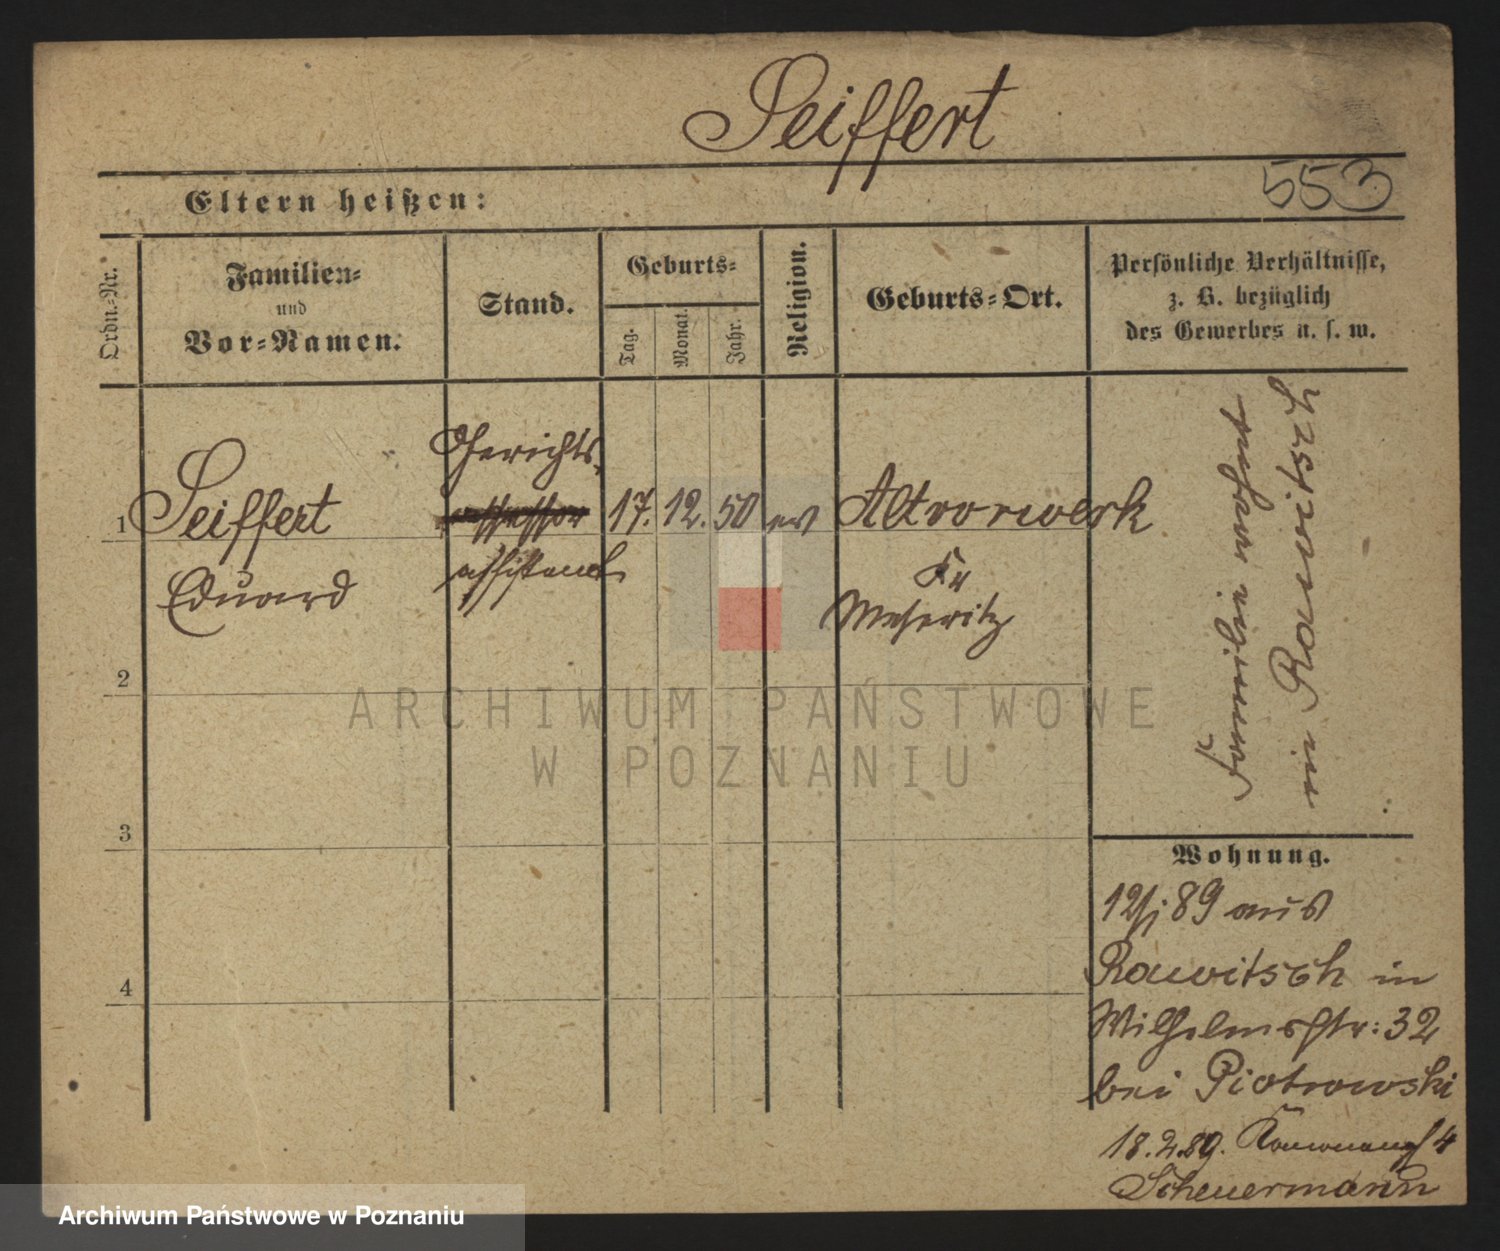 Seiffert
553
Eltern heißen:
Ordn.-Nr.
Familien-
und
Vor-Namen.
Stand.
Geburts-
Tag.
Monat.
Jahr.
Religion.
Geburts-Ort.
Persönliche Verhältnisse,
z. B. bezüglich
des Gewerbes u. s. w.
Gerichts
1 Seiffert 17. 12. 50 ev Altvorwerk
Eduard
assistent
Kr
Meseritz
Familie wohnt
in Rawitsch
2
3
4
Wohnung.
12/1 89 aus
Rawitsch in
Wilhelmstr: 32
bei Piotrowski
18.2.89.
4
Scheuermann
ARCHIWUM PAŃSTWOWE
W POZNANIU
Archiwum Państwowe w Poznaniu